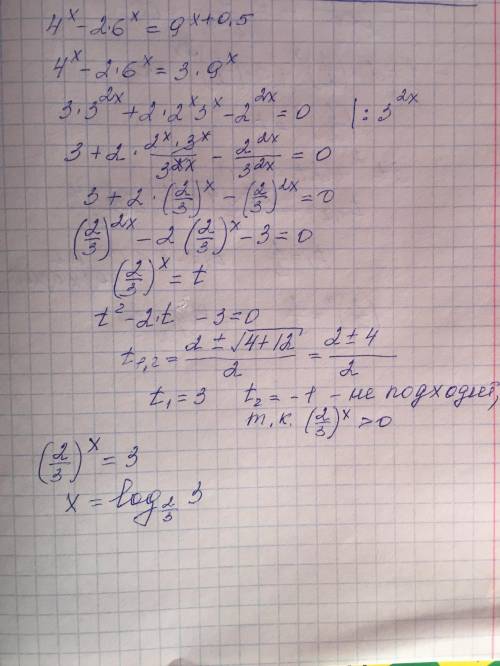 4^x - 2·6^x = 9^{x+0,5}
4^x - 2·6^x = 3·9^x
3·3^{2x} + 2·2^x 3^x - 2^{2x} = 0 | : 3^{2x}
3 + 2 · \frac{2^x · 3^x}{3^{2x}} - \frac{2^{2x}}{3^{2x}} = 0
3 + 2 · (\frac{2}{3})^x - (\frac{2}{3})^{2x} = 0
(\frac{2}{3})^{2x} - 2 (\frac{2}{3})^x - 3 = 0
(\frac{2}{3})^x = t
t^2 - 2·t - 3 = 0
t_{1,2} = \frac{2 ± \sqrt{4+12}}{2} = \frac{2 ± 4}{2}
t_1 = 3 t_2 = -1 - не подходит,
т.к. (\frac{2}{3})^x > 0
(\frac{2}{3})^x = 3
x = log_{\frac{2}{3}} 3